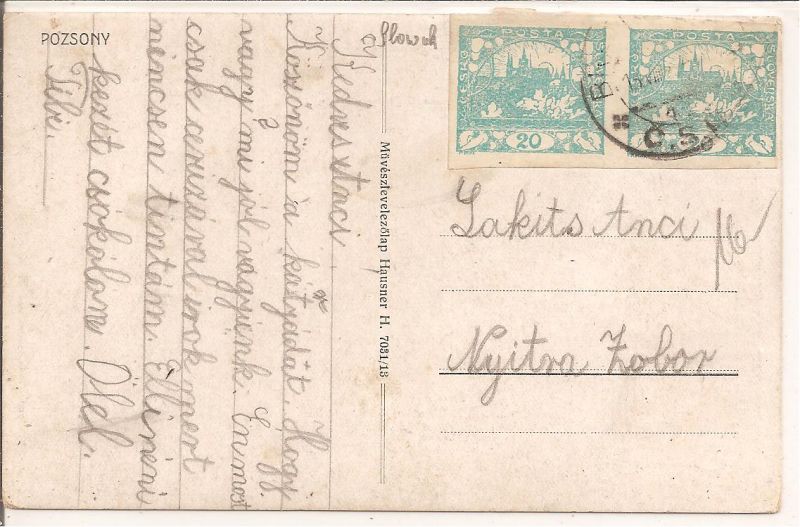 POZSONY
Slowak
Kedves Anci
Köszönöm a kutyádat. Hogy
vagy? mi jól vagyunk. Én most
csak ceruzával irok mert
nincsen tintám. Elli néni
kezét csókolom. Ölel.
Tibi.
Művészlevelezőlap Hausner H. 7031/13
POSTA
ČESKO SLOVENSKÁ
20
POSTA
Č.S.
Lakits Anci
Nyitra Zobor